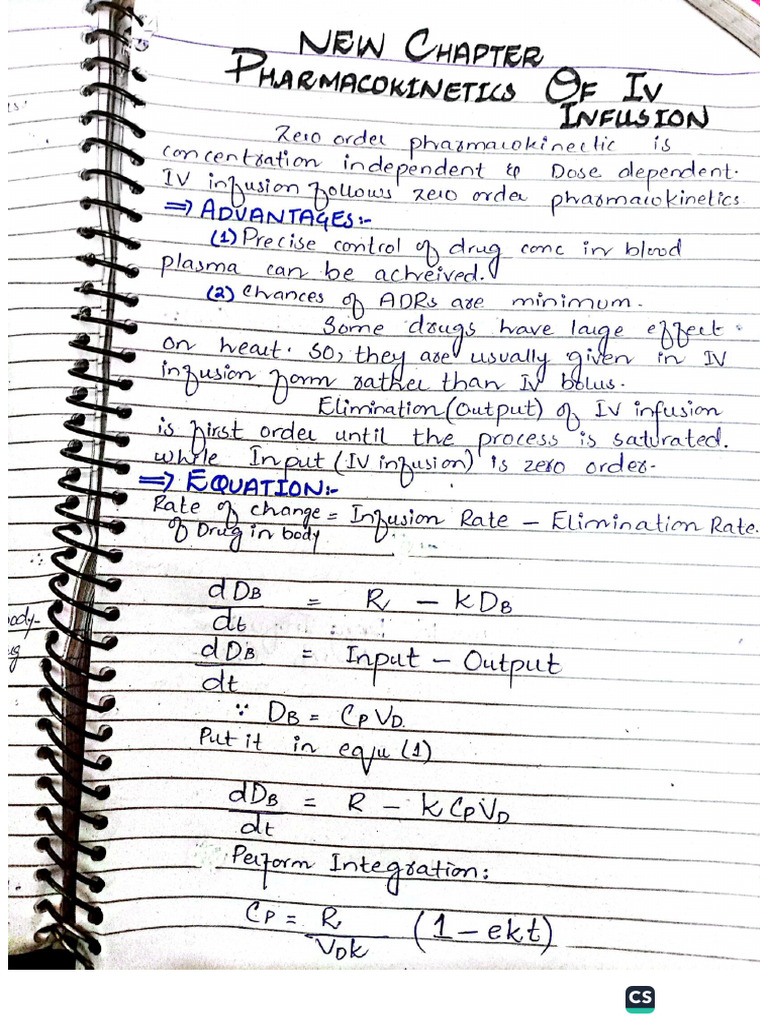 NEW CHAPTER
PHARMACOKINETICS OF IV
INFUSION
Zero order pharmacokinectic is
concentration independent & Dose dependent.
IV infusion follows zero order pharmacokinetics
⇒ ADVANTAGES:-
(1) Precise control of drug conc in blood
plasma can be achreived.
(2) Chances of ADRs are minimum.
Some drugs have large effect
on heart. So, they are usually given in IV
infusion form rather than IV bolus.
Elimination (Output) of IV infusion
is first order until the process is saturated.
while Input (IV infusion) is zero order.
⇒ EQUATION:-
Rate of change = Infusion Rate - Elimination Rate.
of Drug in body
dDB/dt = R - KDB
dDB/dt = Input - Output
∵ DB = CpVD
Put it in equ (1)
dDB/dt = R - K CpVD
Perform Integration:
Cp = R/VDK (1 - ekt)
ody-
CS